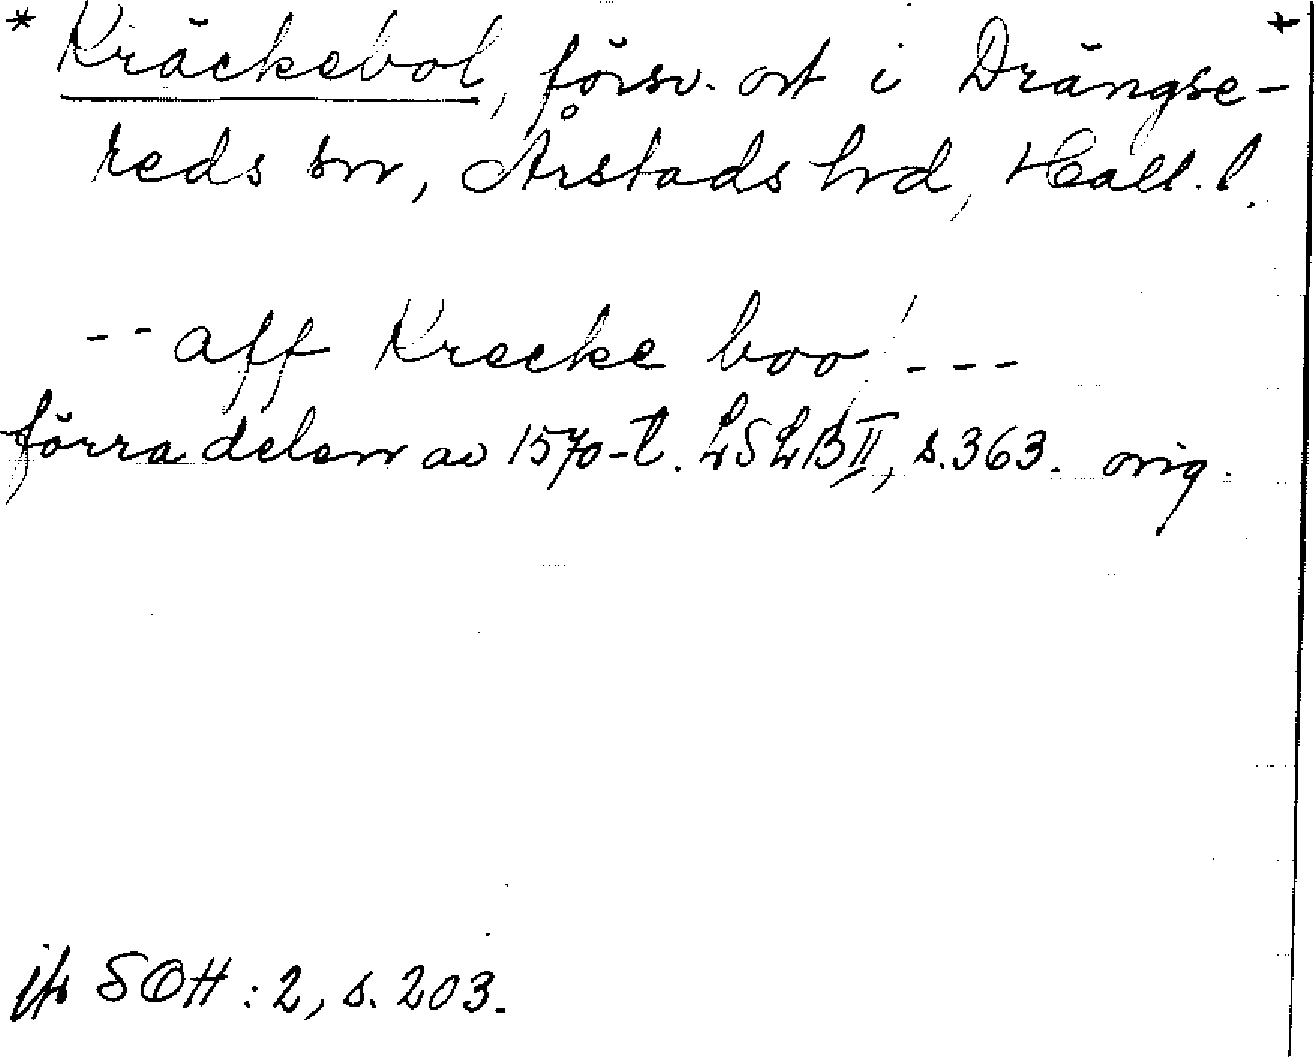 * Kräckebol, försv. ort i Drängse- +
reds sn, Årstads hd, Hall. l.
-- aff Krecke boo! ---
förra delen av 1570-t. LSLB II, s. 363. orig.
jfr SOH : 2, s. 203.